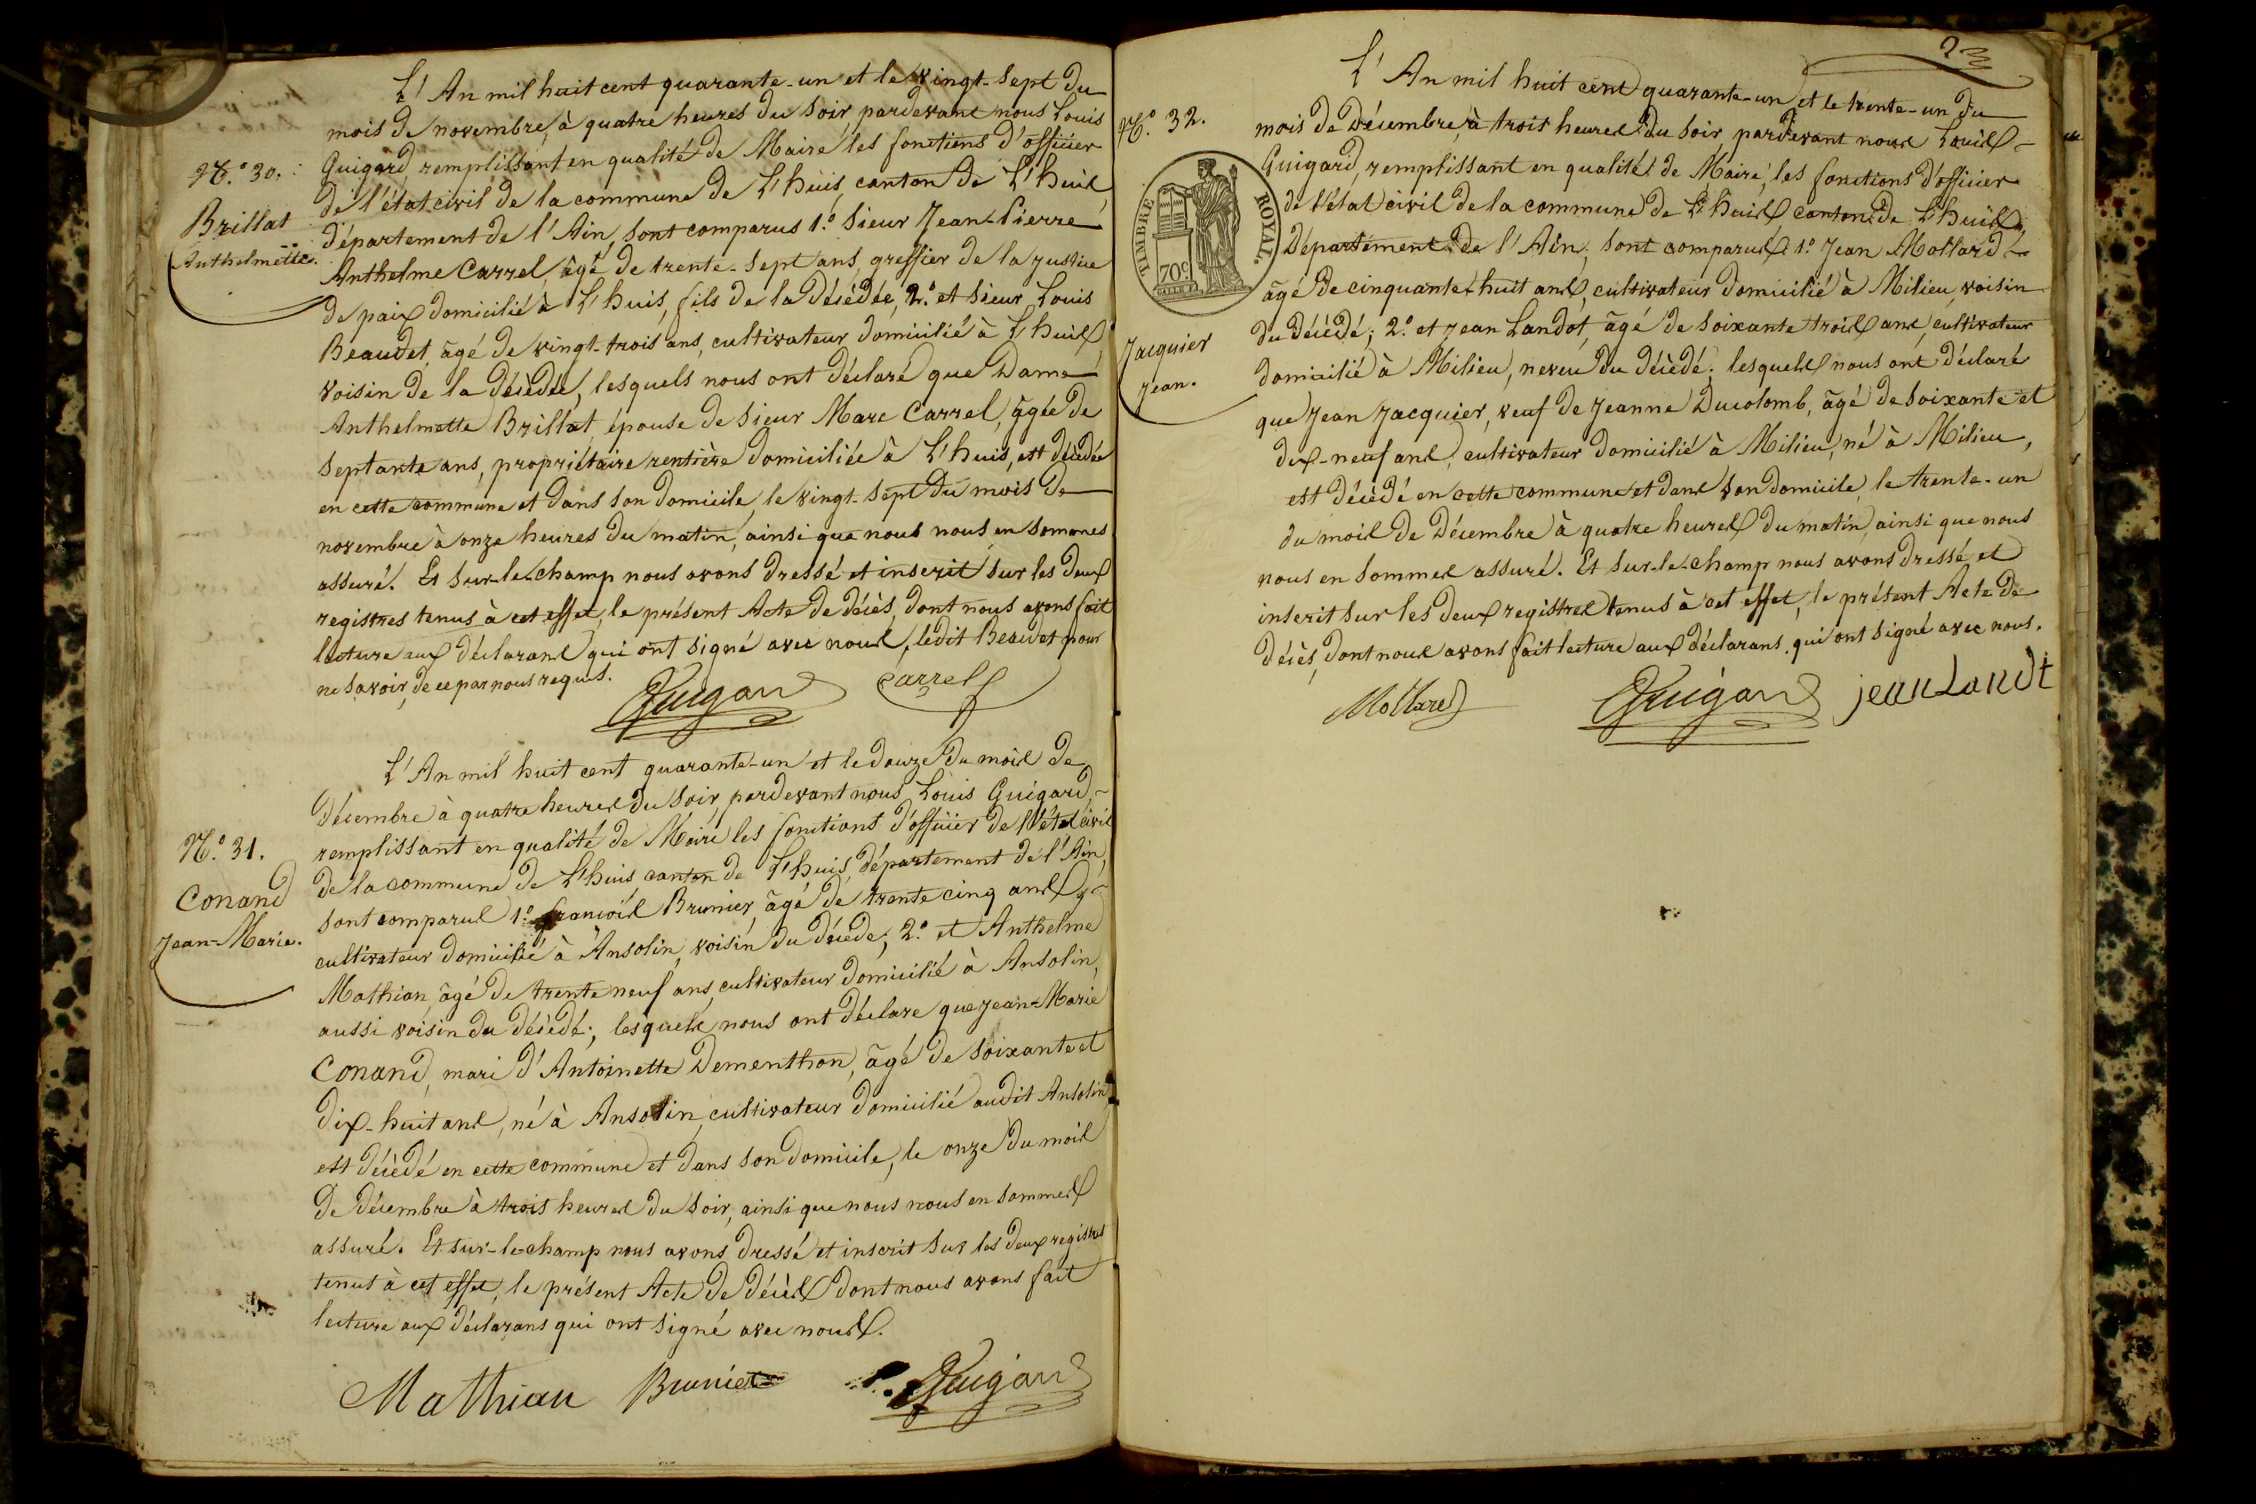 L'An mil huit cent quarante-un et le vingt-sept du
mois de novembre, à quatre heures du soir pardevant nous Louis
Guigard remplissant en qualité de Maire les fonctions d'officier
de l'état civil de la commune de L'huis, canton de L'huis,
département de l'Ain, sont comparus 1.º Sieur Jean-Pierre
Anthelme Carrel, âgé de trente-sept ans, greffier de la justice
de paix domicilié à L'huis, fils de la décédée, 2.º et sieur Louis
Beaudet, âgé de vingt-trois ans, cultivateur domicilié à L'huis
voisin de la décédée, lesquels nous ont déclaré que Dame
Anthelmette Brillat, épouse de sieur Marc Carrel, âgée de
septante ans, propriétaire rentière domiciliée à L'huis, est décédée
en cette commune et dans son domicile, le vingt-sept du mois de
novembre à onze heures du matin, ainsi que nous nous en sommes
assuré. Et sur-le-champ nous avons dressé et inscrit sur les deux
registres tenus à cet effet, le présent Acte de décès, dont nous avons fait
lecture aux déclarans qui ont signé avec nous, ledit Beaudet pour
ne savoir, de ce par nous requis.
Guigard Carrel
N.º 30.
Brillat
Anthelmette.
L'An mil huit cent quarante-un et le douze du mois de
Décembre à quatre heures du soir, pardevant nous Louis Guigard,
remplissant en qualité de Maire les fonctions d'officier de l'état civil
de la commune de L'huis canton de L'huis, département de l'Ain,
sont comparus 1.º françois Brunier, âgé de trente cinq ans
cultivateur domicilié à Ansolin, voisin du décédé; 2.º et Anthelme
Mathian, âgé de trente neuf ans, cultivateur domicilié à Ansolin,
aussi voisin du décédé; lesquels nous ont déclaré que Jean-Marie
Conand, mari d'Antoinette Dementhon, âgé de soixante et
dix-huit ans, né à Ansolin, cultivateur domicilié audit Ansolin,
est décédé en cette commune et dans son domicile, le onze du mois
de décembre à trois heures du soir, ainsi que nous nous en sommes
assuré. Et sur-le-champ nous avons dressé et inscrit sur les deux registres
tenus à cet effet, le présent Acte de décès dont nous avons fait
lecture aux déclarans qui ont signé avec nous.
Mathian Brunier Guigard
N.º 31.
Conand
Jean-Marie.
L'An mil huit cent quarante-un et le trente-un du
mois de Décembre, à trois heures du soir pardevant nous Louis
Guigard, remplissant en qualité de Maire, les fonctions d'officier
de l'état civil de la commune de L'huis canton de L'huis,
Département de l'Ain, sont comparus 1.º Jean Mollard
âgé de cinquante-huit ans, cultivateur domicilié à Milieu, voisin
du décédé; 2.º et Jean Landot, âgé de soixante trois ans, cultivateur
domicilié à Milieu, neveu du décédé; lesquels nous ont déclaré
que Jean Jacquier, veuf de Jeanne Ducolomb, âgé de soixante et
dix-neuf ans, cultivateur domicilié à Milieu, né à Milieu,
est décédé en cette commune et dans son domicile, le trente-un
du mois de Décembre à quatre heures du matin, ainsi que nous
nous en sommes assuré. Et sur-le-champ nous avons dressé et
inscrit sur les deux registres tenus à cet effet, le présent Acte de
décès, dont nous avons fait lecture aux déclarans, qui ont signé avec nous.
Mollard Guigard jean Landt
N.º 32.
TIMBRE ROYAL.
70 c.
Jacquier
Jean.